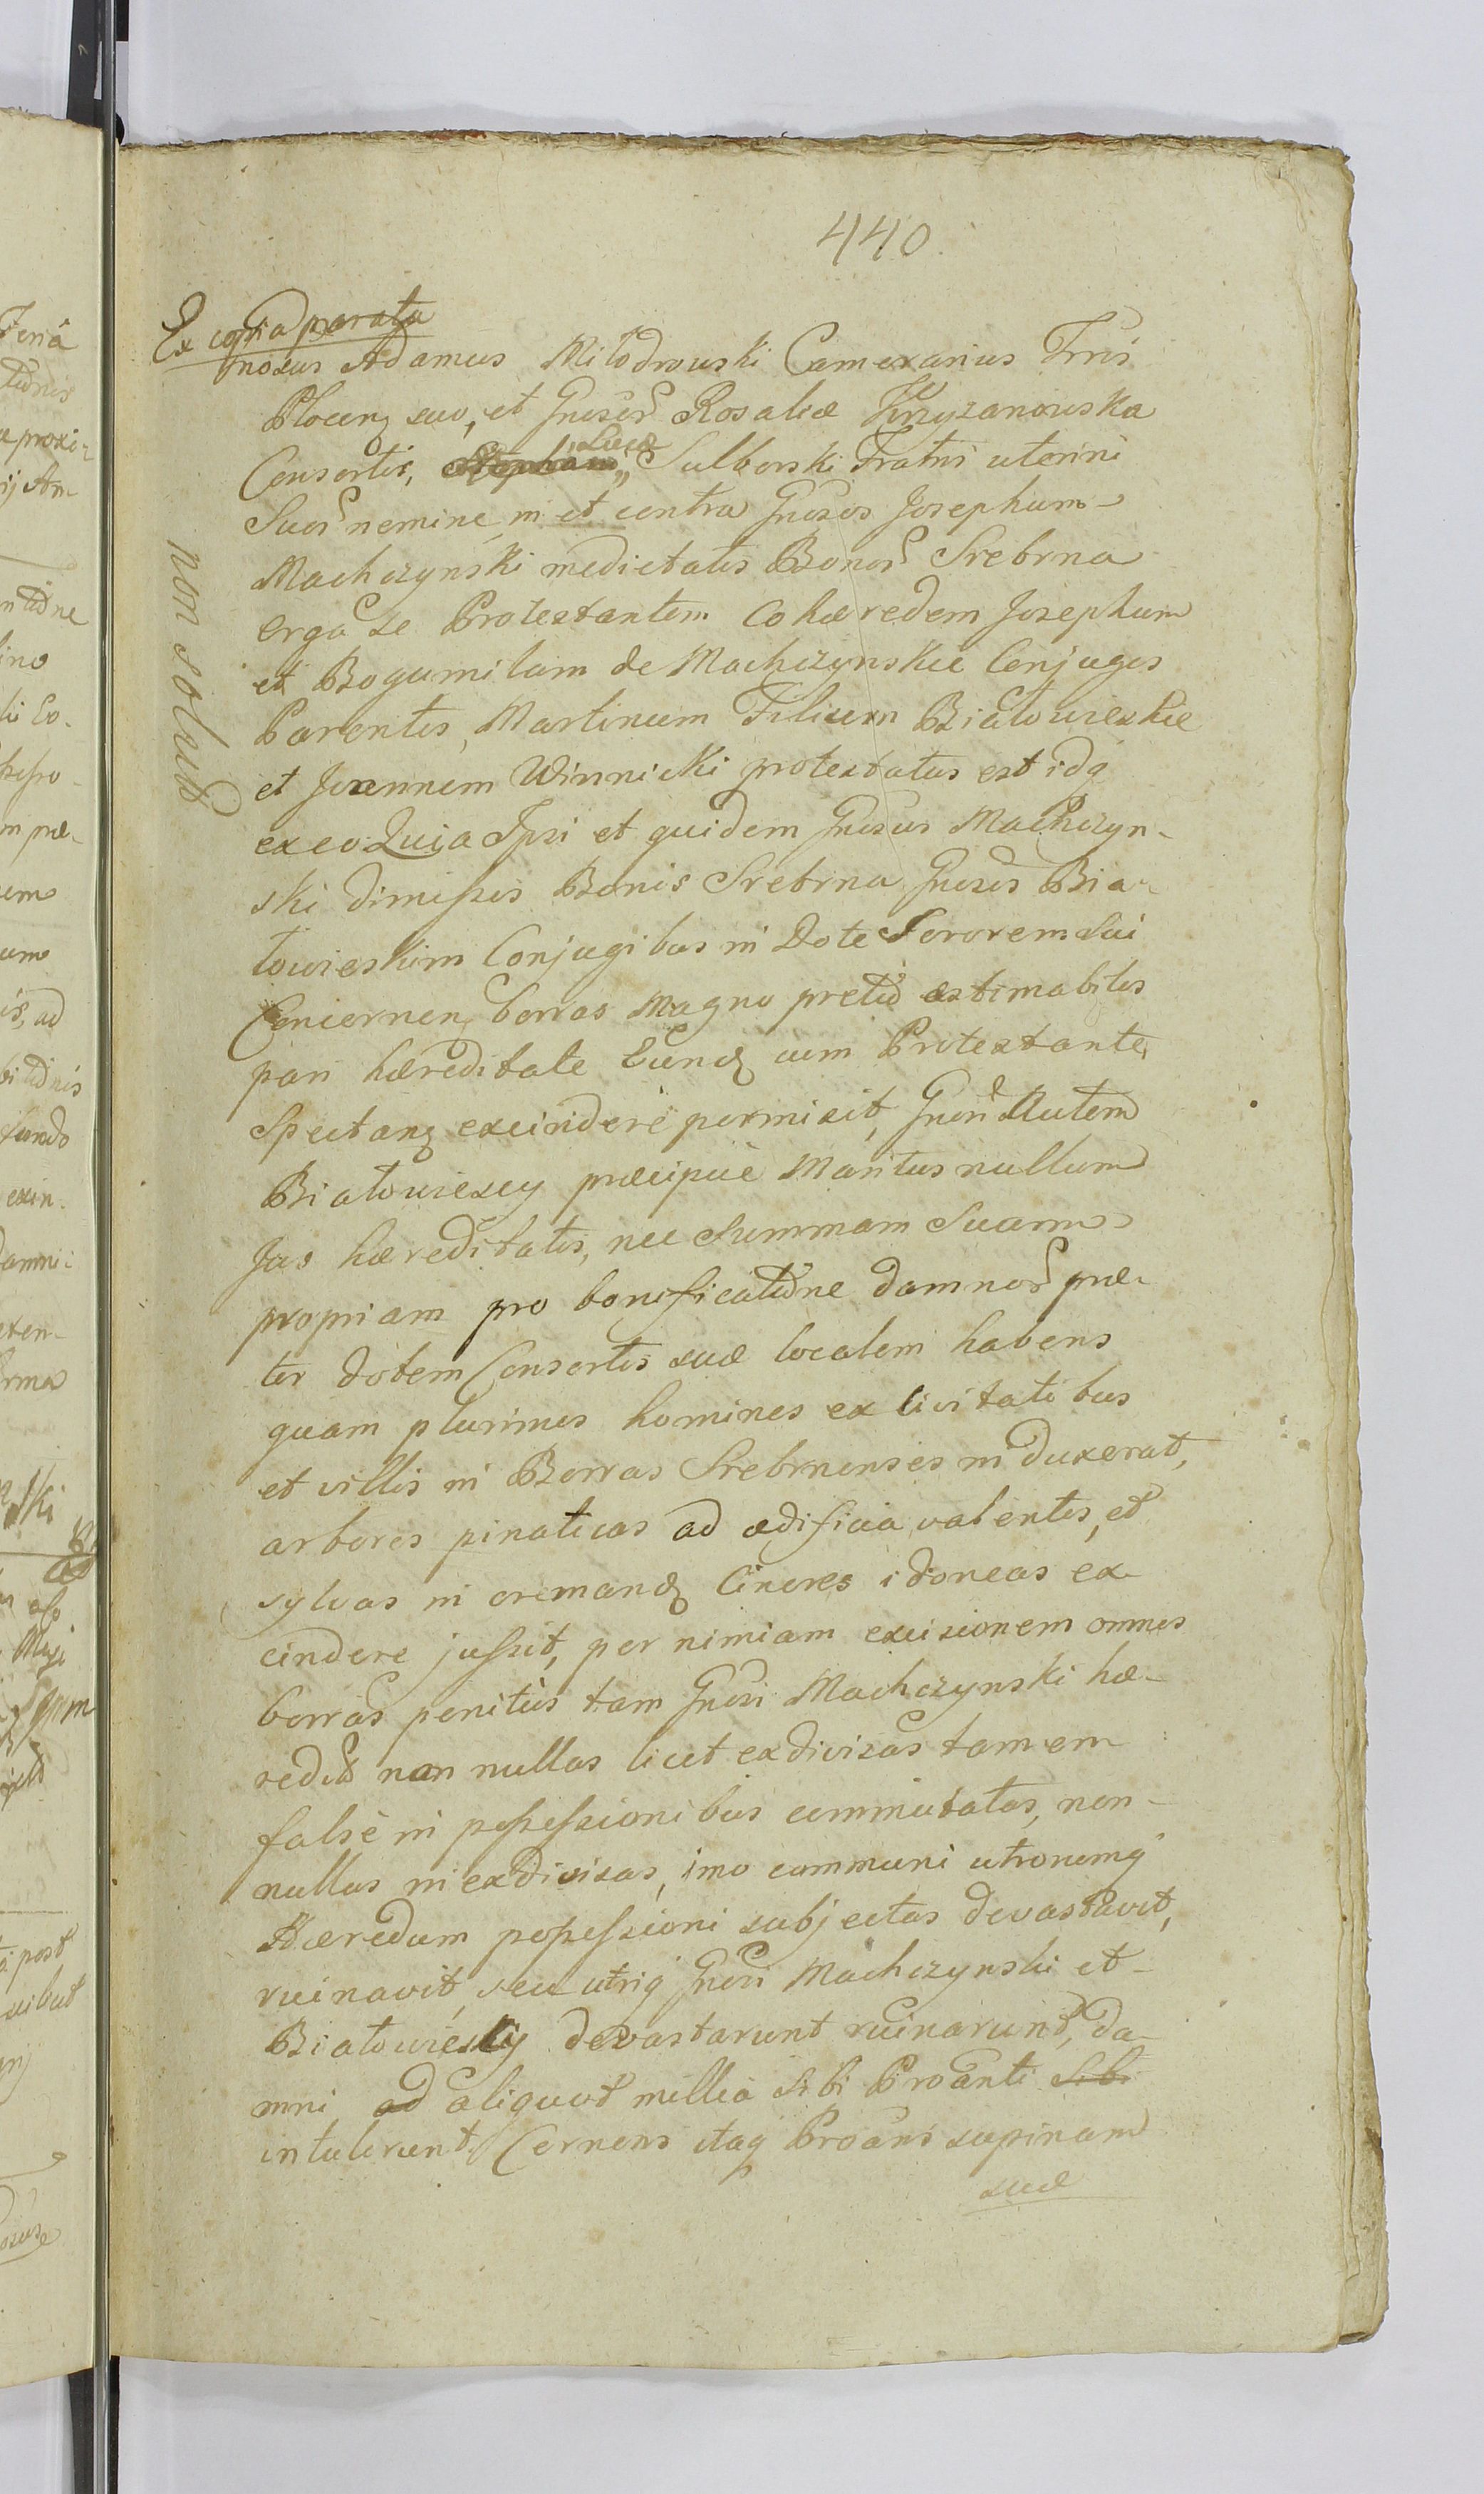 440.
Ex copia parata
Gnosus Adamus Miłodrowski Camerarius Trris
Plocen suo, et Gnosor Rosaliæ Krzyzanowska
Consortis, Stephani Lucæ Sulborski Fratris uterini
Suor nemine, in et contra Gnosos Josephum
Machczynski medietatis Bonor Srebrna
erga se Protestantem Cohæredem Josephum
et Bogumilam de Machczynskie Conjuges
Parentes, Martinum Filium Białowieskie
et Joannem Winnicki protestatus est idq
ex eo Quia Ipsi et quidem Gnosus Machczyn-
ski dimissis Bonis Srebrna Gnosis Bia-
łowieskim Conjugibus in Dote Sororem Sui
Concernen borras magno pretio æstimabiles
pari hæreditate Eund cum Protestante,
Spectanq excindere permisit, Gnosi Autem
Białowiescy præcipuè Maritus nullum
Jus hæreditatis, nec Summam Suam
propriam pro bonificatione damnor præ-
ter dotem Consortis suæ localem habens
quam plurimos homines ex Civitatibus
et villis in Borras Srebrnenses induxerat,
arbores pinaticas ad ædificia valentes, et
sylvas in cremand Cineres idoneas ex-
cindere jussit, per nimiam excisionem omnes
borras penitùs tam Gnosi Machczynski hæ-
redit non nullas licet exdivisas tamen
falsè in possessionibus commutatas, non-
nullas inexdivisas, imo communi utronumq
Hæredum possessioni subjectas devastavit,
ruinavit, seu utriq Gnosi Machczynski et
Białowiescy devastarunt ruinarunt, da-
mni ad aliquot millia Sibi Proanti Sibi
intulerunt. Cernens itaq Proans supinam
suæ
non solut